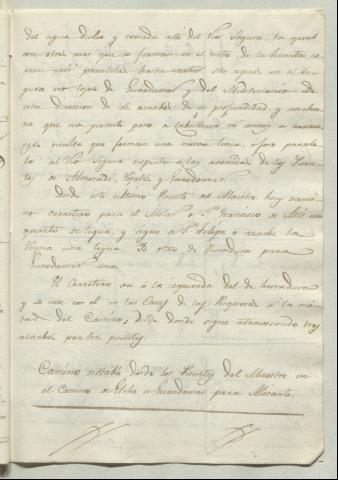 del agua dulce y tomada allí del Rio Segura, la qual
con otras mas que se forman en el resto de la huerta co-
rren casi paralelas hasta verter sus aguas en el Se-
gura no lejos de Guardamar y del Mediterraneo. De
esta direccion de las azarbes de su profundidad y anchu-
ra que no permite paso a Caballeria ni menos a carrua-
ges resulta que forman una nueva linea, o foso parale-
lo al Rio Segura respecto a las avenidas de los Puen-
tes de Almoradi, Rojales y Guardamar.
Desde este ultimo Puente del Maestre hay cami-
no carretero para el Molar o Sn. Francisco de Asis un
quarto de legua, y sigue a Sn. Felipe o azarbe la
Reyna una legua. Ys otro de herradura para
Guardamar una.
El Carretero va à la izquierda del de herradura
y se une con el en las Casas de las Pesqueras à la mi-
tad del Camino, desde donde sigue atravesando tres
azarbes por tres puentes.
Camino notable desde los Puentes del Maestre en
el camino a Elche o Guardamar para Alicante.